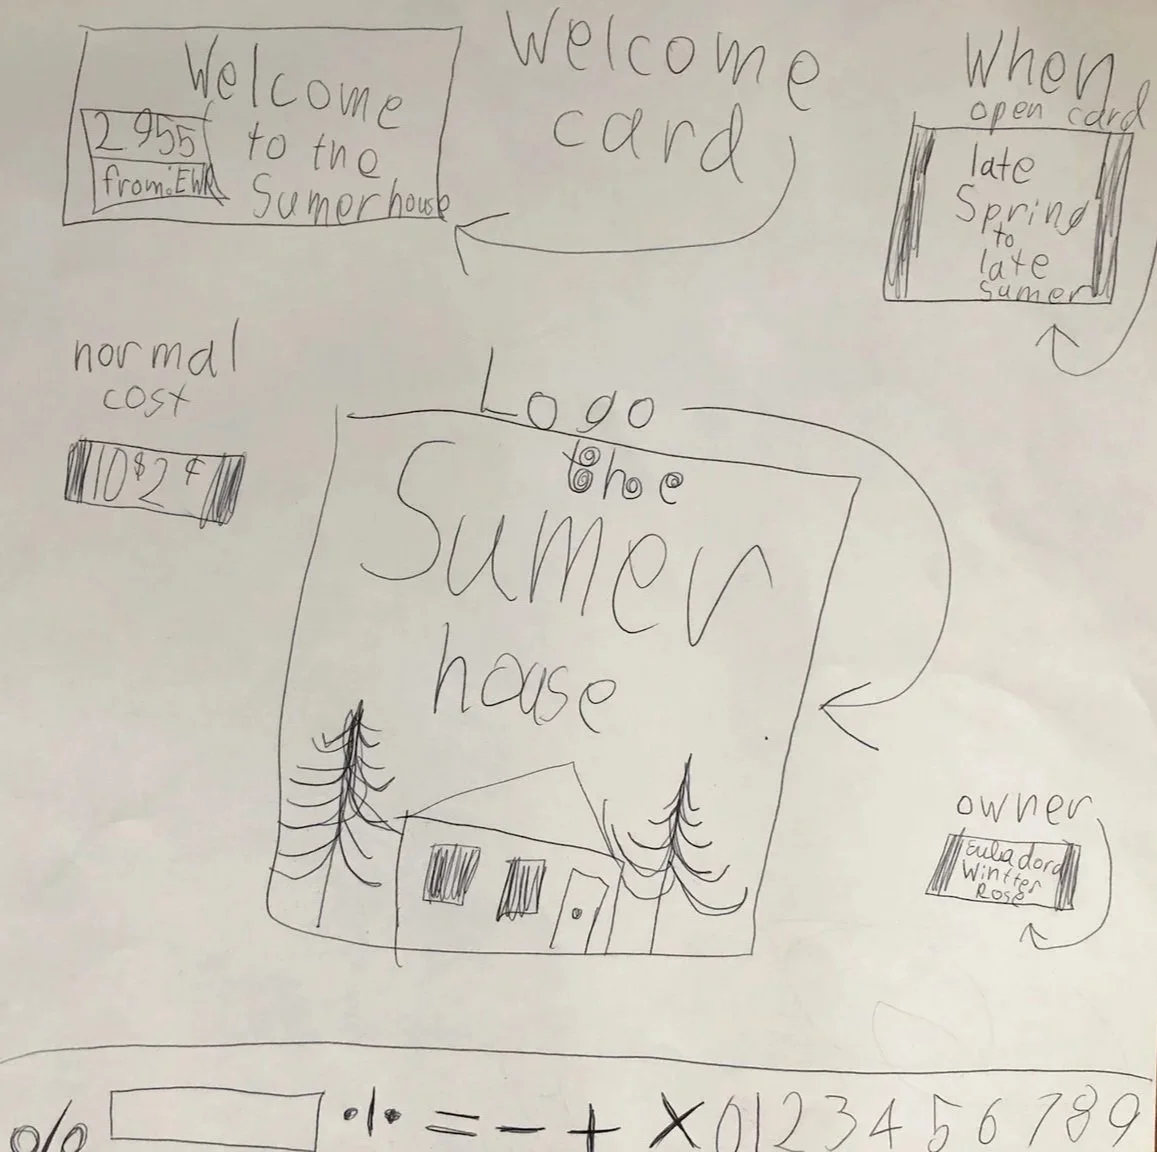 Welcome
to the
Sumerhouse
2955
from:EWR
Welcome
card
When
open card
late
Spring
to
late
sumer
normal
cost
10$2¢
Logo
the
Sumer
house
owner
Eubadora
Wintter
Rose
% ·/· = - + X 0 1 2 3 4 5 6 7 8 9